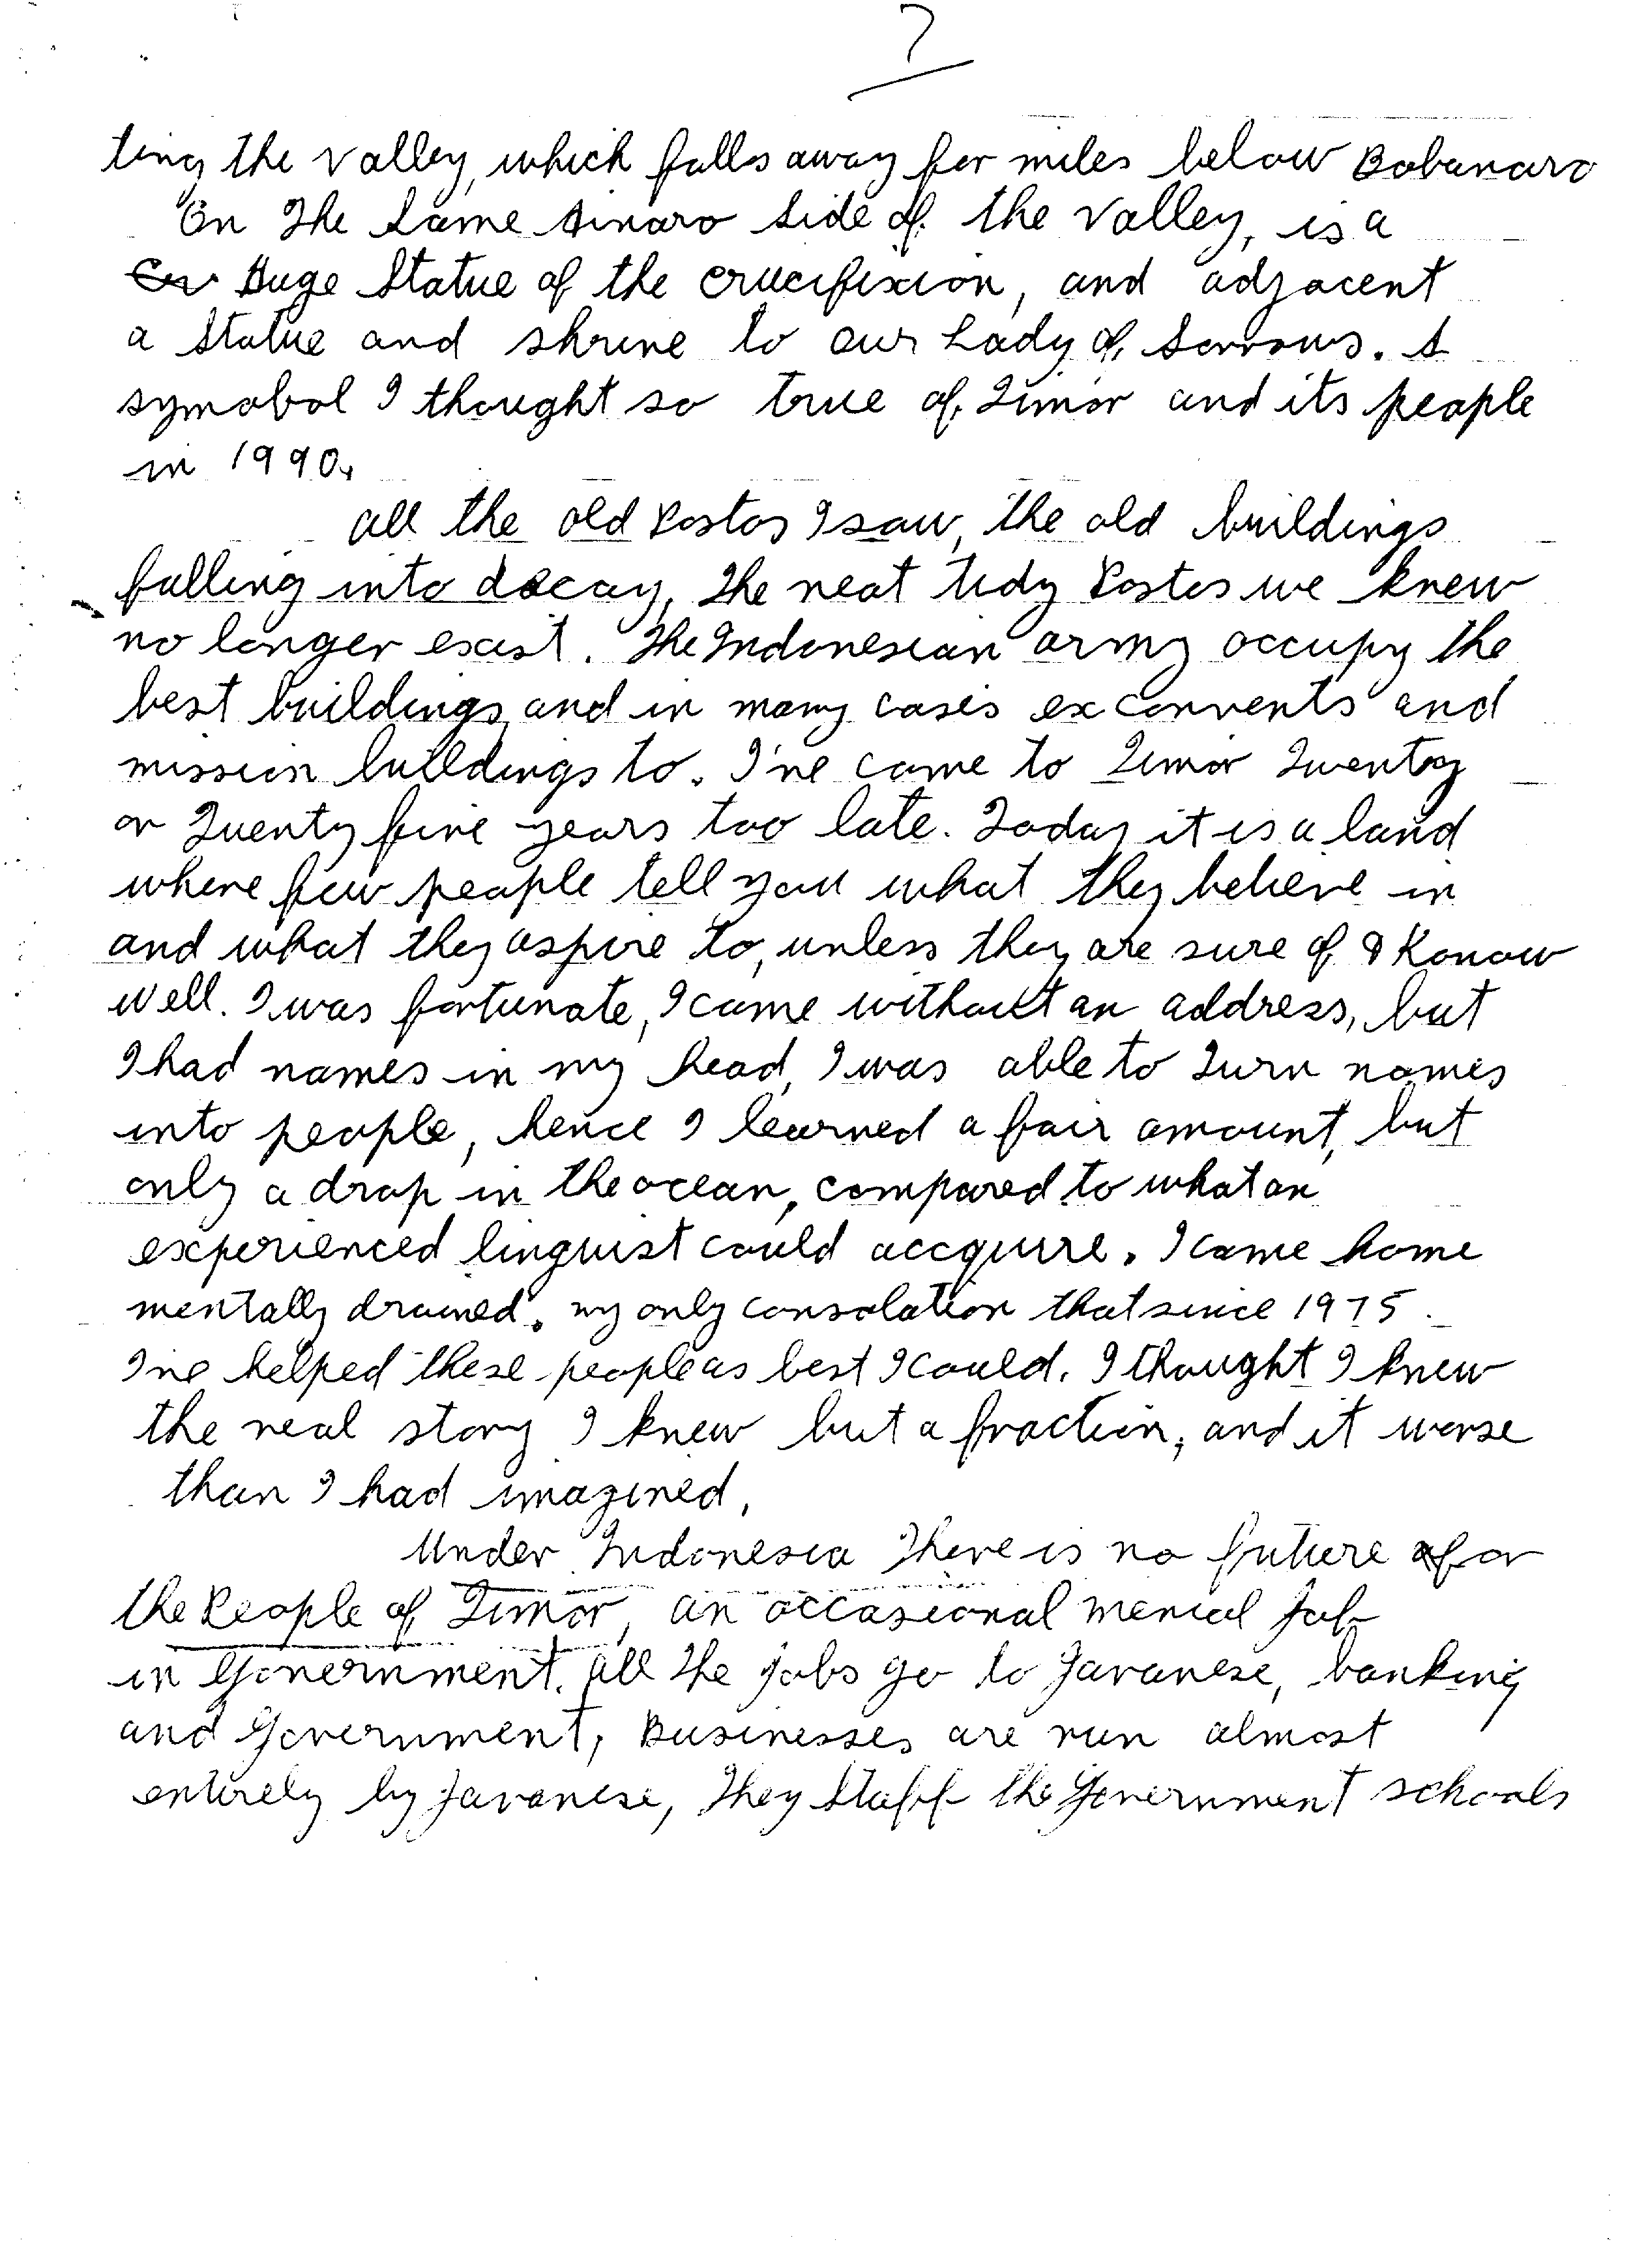 7
ting the valley, which falls away for miles below Bobanaro
On The Same Ainaro side of the valley, is a
Huge Statue of the crucifixion, and adjacent
a Statue and shrine to our Lady of Sorrows. A
symobol I thought so true of Timor and its people
in 1990.
all the old Postos I saw, the old buildings
falling into decay, The neat tidy Postos we knew
no longer exist. The Indonesian army occupy the
best buildings, and in many cases ex convents and
mission buildings to. I've came to Timor Twenty
or Twenty five years too late. Today it is a land
where few people tell you what they believe in
and what they aspire to, unless they are sure of & Konow
well. I was fortunate, I came without an address, but
I had names in my head, I was able to Turn names
into people, hence I learned a fair amount, but
only a drop in the ocean, compared to what an
experienced linguist could accquire. I came home
mentally drained. my only consolation that since 1975
I've helped these people as best I could. I thought I knew
the real story I knew but a fraction, and it worse
than I had imagined,
Under Indonesia There is no future for
the People of Timor, an occasional menial Job
in Government. All The jobs go to Javanese, banking
and Government, Businesses are run almost
entirely by Javanese, They Staff the Government schools